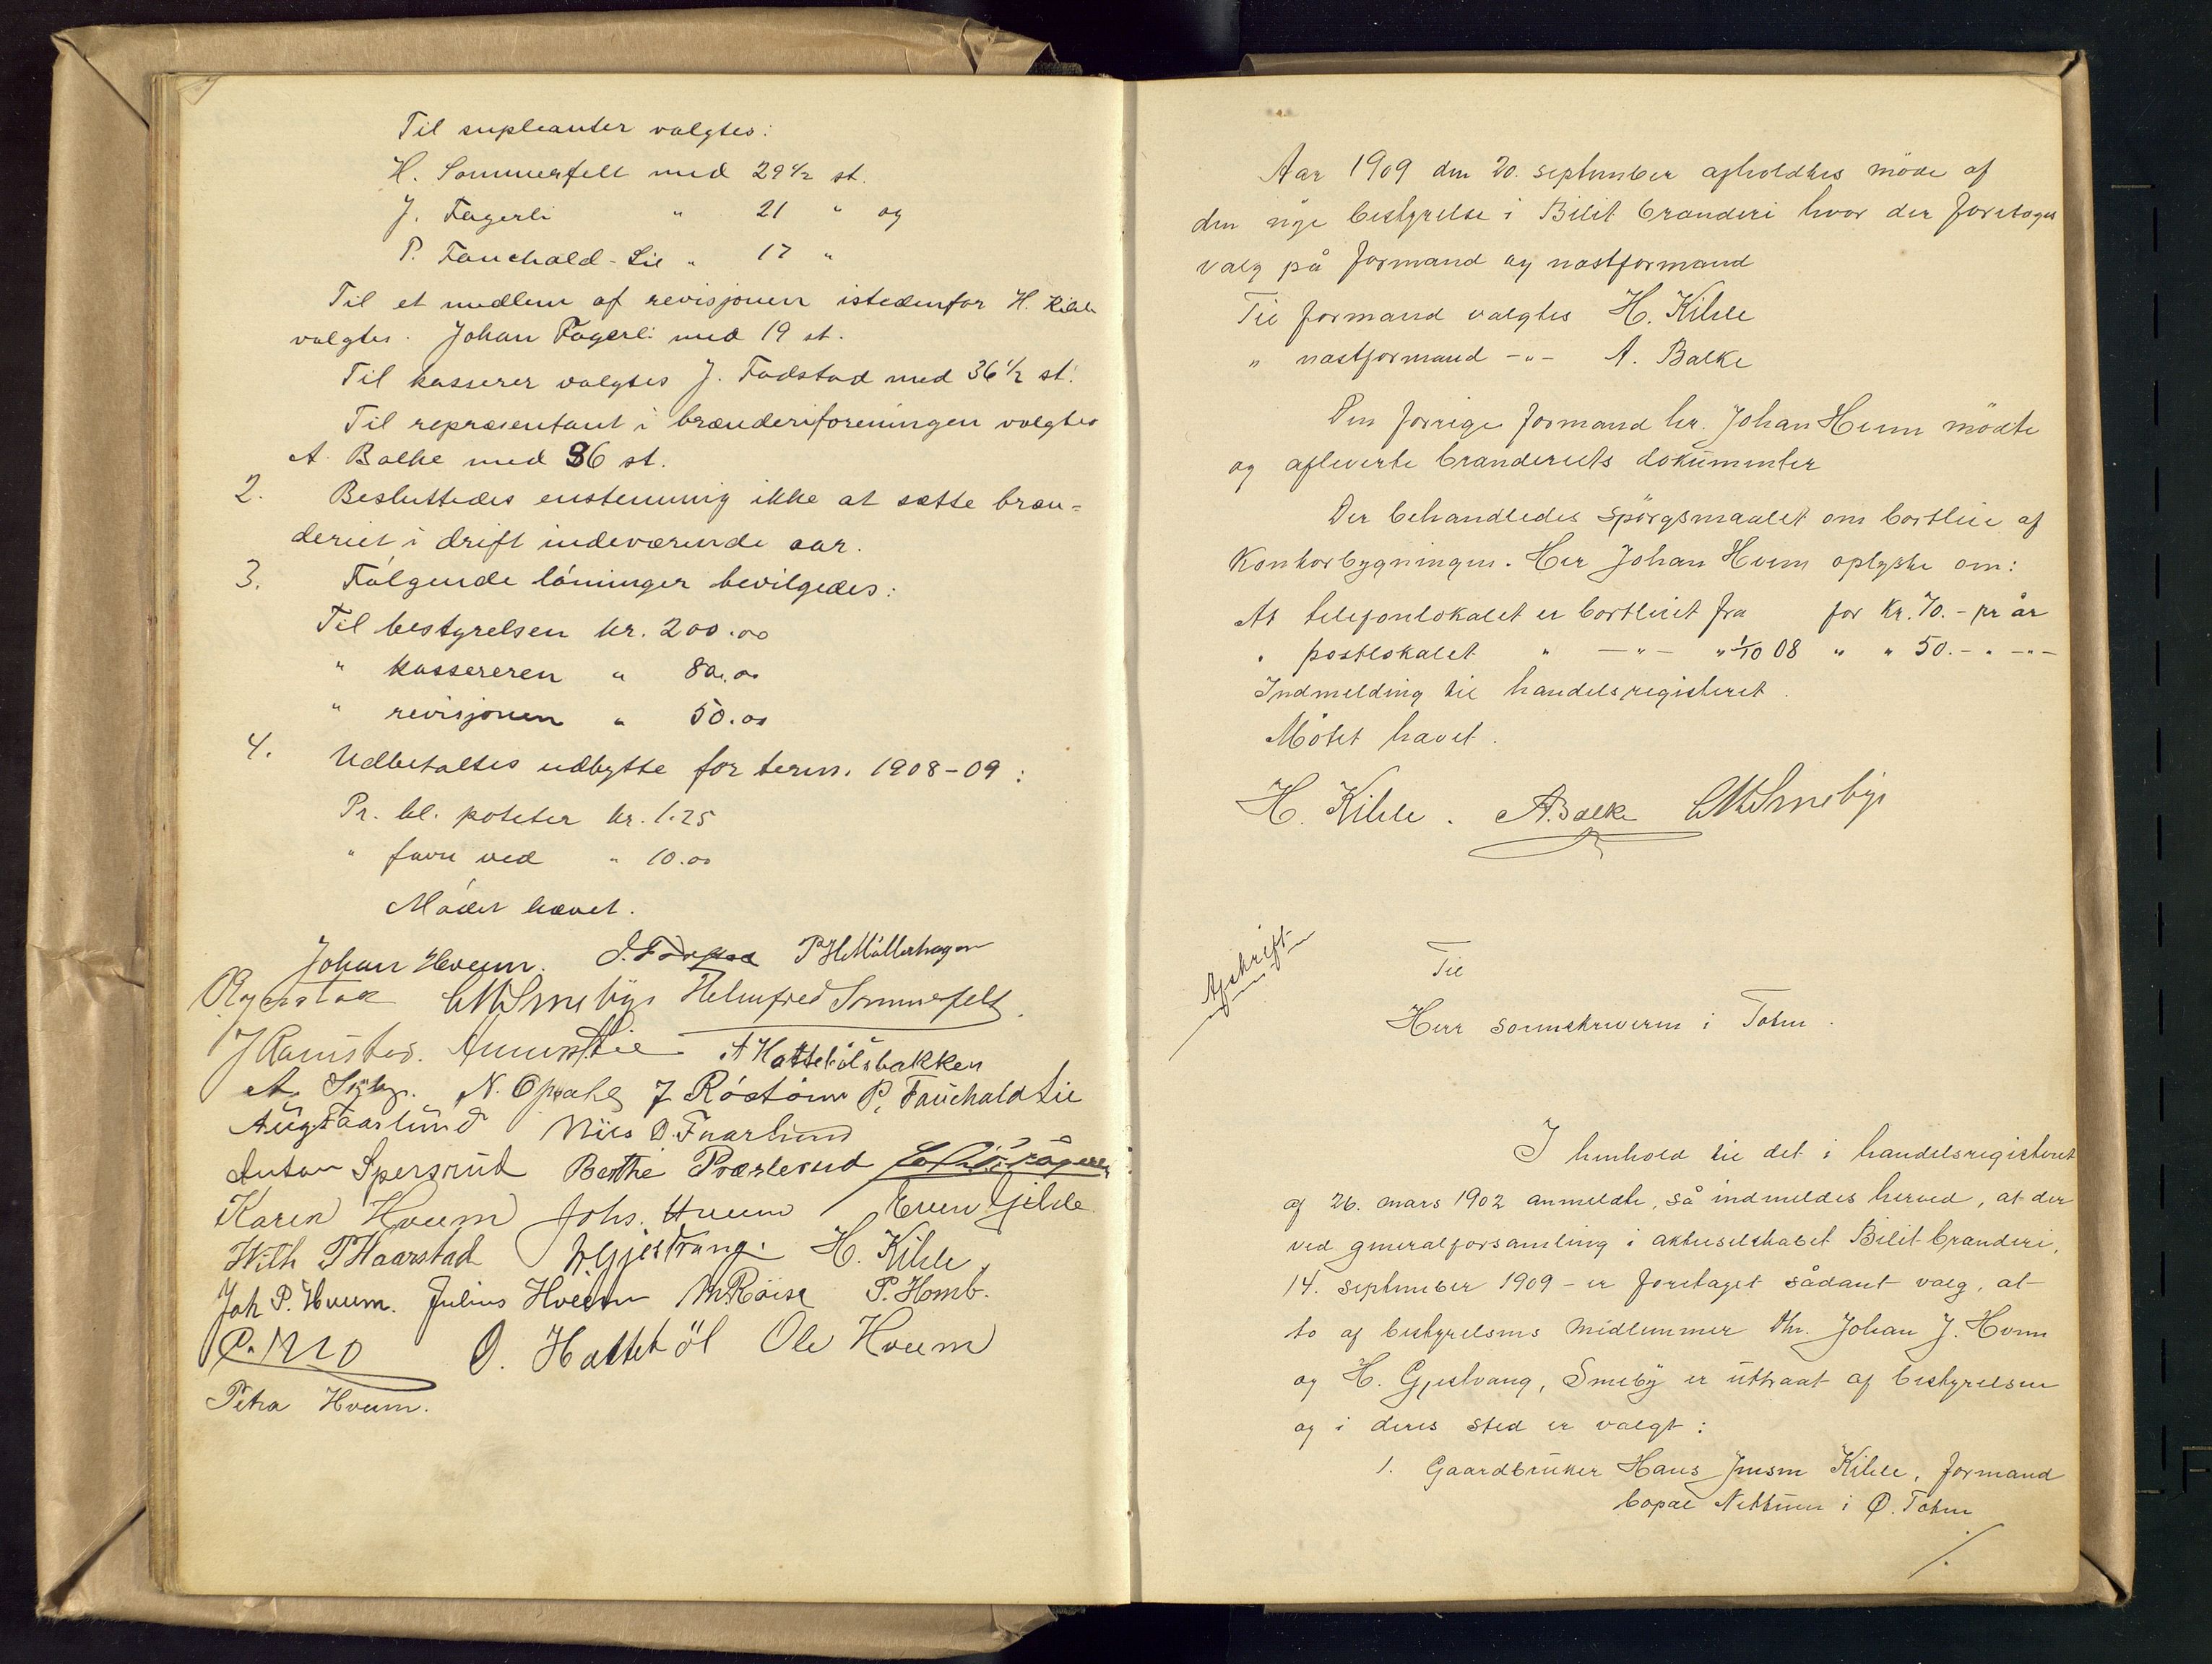 Til supleanter valgtes:
H. Sommerfelt med 29 1/2 st.
J. Fagerli " 21 " og
P. Fauchald-Lie " 17 "
Til et medlem af revisjonen istedenfor H. Kihle
valgtes. Johan Fagerli med 19 st.
Til kasserer valgtes J. Fodstad med 36 1/2 st.
Til repræsentant i brænderiforeningen valgtes
A. Balke med 36 st.
2. Besluttedes enstemmig ikke at sætte bræn=
deriet i drift indeværende aar.
3. Følgende lönninger bevilgedes:
Til bestyrelsen kr. 200.00
" kassereren " 80.00
" revisjonen " 50.00
4. Udbetaltes udbytte for term. 1908-09:
Pr. hl. poteter kr. 1.25
" favn ved " 10.00
Mödet hævet.
Johan Hveem. P H Möllerhagen
C M Smebye Helmfred Sommerfelt.
J Ramstad. A Hattetölsbakken
A. N. Opsahl J Röström P. Fauchald Lie
Aug Faarlund Niels O. Faarlund
Anton Spersrud Berthe Præsterud
Karen Hveem Johs. Hveem Even Gihle
With P Haarstad H Gjestvang. H. Kihle
Joh P. Hveem. Julius Hveem M. Röise P. Homb.
O. Hattetöl Ole Hveem
Petra Hveem.
Aar 1909 den 20. september afholdtes möde af
den nye bestyrelse i Bilit brænderi hvor der foretoges
valg på formand og næstformand
Til formand valgtes H. Kihle
" næstformand -"- A. Balke
Den forrige formand hr. Johan Hveem mödte
og afleverte brænderiets dokümenter
Der behandledes spörgsmaalet om bortleie af
Kontorbygningen. Her Johan Hveem oplyste om:
At telefonlokalet er bortleiet fra for Kr. 70.- pr år
" postlokalet " -"- " 1/10 08 " " 50.- " -"-
Indmelding til handelsregisteret.
Mötet hævet.
H. Kihle. A. Balke C M Smebye
Afskrift
Til
Herr sorenskriveren i Toten.
I henhold til det i handelsregisteret
af 26. mars 1902 anmeldte, så indmeldes herved, at der
ved generalforsamling i aktieselskabet Bilit brænderi,
14. september 1909 - er foretaget sådant valg, at
to af bestyrelsens medlemmer Hr. Johan J. Hveem
og H. Gjestvang, Smeby er üttraat af bestyrelsen
og i deres sted er valgt:
1. Gaardbrüker Hans Jensen Kihle, formand
bopæl Nettüm i Ø. Toten
./.